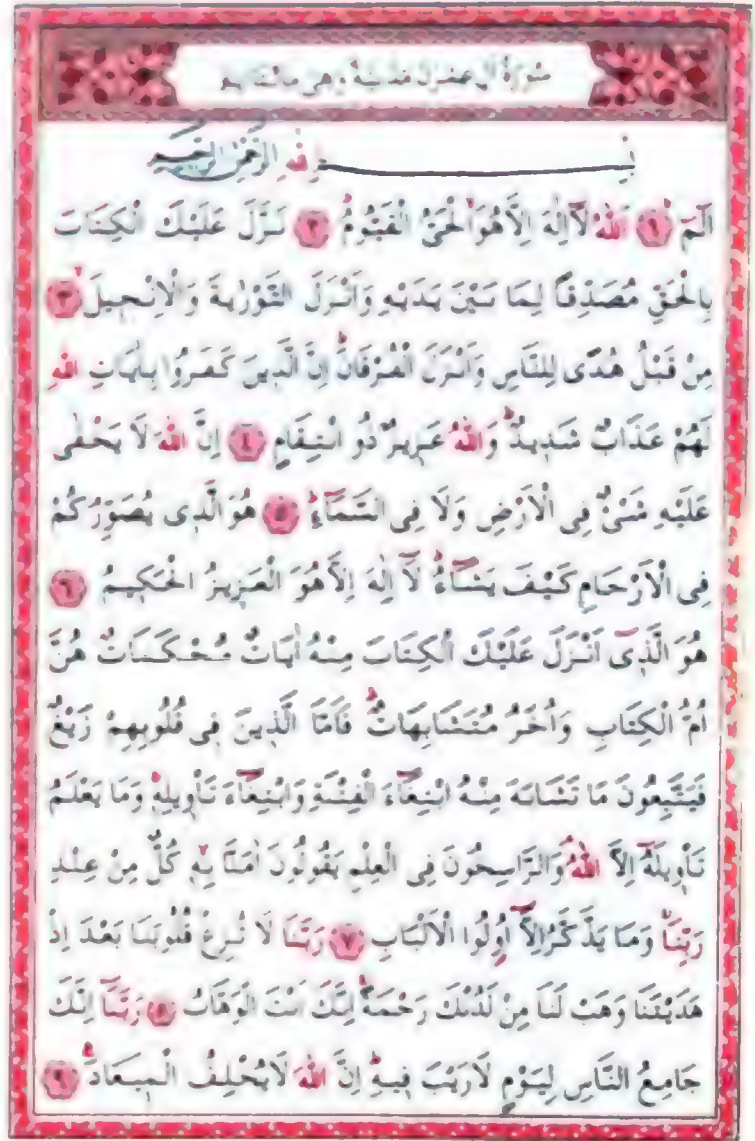 سُورَةُ آلِ عِمْرَانَ مَدَنِيَّةٌ وَهِيَ مِائَتَا آيَةٍ
بِسْــــــــمِ اللّٰهِ الرَّحْمٰنِ الرَّحِيمِ
الٓمٓ ﴿١﴾ اَللّٰهُ لَٓا اِلٰهَ اِلَّا هُوَ الْحَيُّ الْقَيُّومُ ﴿٢﴾ نَزَّلَ عَلَيْكَ الْكِتَابَ
بِالْحَقِّ مُصَدِّقًا لِمَا بَيْنَ يَدَيْهِ وَاَنْزَلَ التَّوْرٰيةَ وَالْاِنْجِيلَ ﴿٣﴾
مِنْ قَبْلُ هُدًى لِلنَّاسِ وَاَنْزَلَ الْفُرْقَانَ اِنَّ الَّذِينَ كَفَرُوا بِاٰيَاتِ اللّٰهِ
لَهُمْ عَذَابٌ شَدِيدٌ وَاللّٰهُ عَزِيزٌ ذُو انْتِقَامٍ ﴿٤﴾ اِنَّ اللّٰهَ لَا يَخْفٰى
عَلَيْهِ شَيْءٌ فِي الْاَرْضِ وَلَا فِي السَّمَٓاءِ ﴿٥﴾ هُوَ الَّذِي يُصَوِّرُكُمْ
فِي الْاَرْحَامِ كَيْفَ يَشَٓاءُ لَٓا اِلٰهَ اِلَّا هُوَ الْعَزِيزُ الْحَكِيمُ ﴿٦﴾
هُوَ الَّذِٓي اَنْزَلَ عَلَيْكَ الْكِتَابَ مِنْهُ اٰيَاتٌ مُحْكَمَاتٌ هُنَّ
اُمُّ الْكِتَابِ وَاُخَرُ مُتَشَابِهَاتٌ فَاَمَّا الَّذِينَ فِي قُلُوبِهِمْ زَيْغٌ
فَيَتَّبِعُونَ مَا تَشَابَهَ مِنْهُ ابْتِغَٓاءَ الْفِتْنَةِ وَابْتِغَٓاءَ تَأْوِيلِهِ وَمَا يَعْلَمُ
تَأْوِيلَهُٓ اِلَّا اللّٰهُ وَالرَّاسِخُونَ فِي الْعِلْمِ يَقُولُونَ اٰمَنَّا بِهِ كُلٌّ مِنْ عِنْدِ
رَبِّنَا وَمَا يَذَّكَّرُ اِلَّٓا اُولُوا الْاَلْبَابِ ﴿٧﴾ رَبَّنَا لَا تُزِغْ قُلُوبَنَا بَعْدَ اِذْ
هَدَيْتَنَا وَهَبْ لَنَا مِنْ لَدُنْكَ رَحْمَةً اِنَّكَ اَنْتَ الْوَهَّابُ ﴿٨﴾ رَبَّنَٓا اِنَّكَ
جَامِعُ النَّاسِ لِيَوْمٍ لَا رَيْبَ فِيهِ اِنَّ اللّٰهَ لَا يُخْلِفُ الْمِيعَادَ ﴿٩﴾